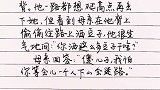 背。他一路都想把高点再丢
下地,但看到母亲在他背上
偷偷往路上洒豆子,他很生
气地问:“你洒豆子干嘛?”
母亲回答:“傻儿子,我怕
你等会一个人下山会迷路。”